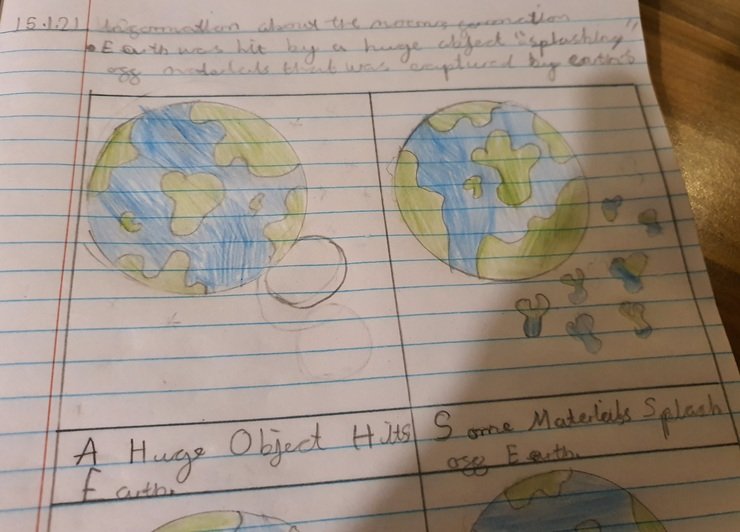 15.1.21 Information about the moons formation
• Earth was hit by a huge object "splashing"
off materials that was captured by earth's
A Huge Object Hits
Earth.
Some Materials Splash
off Earth.